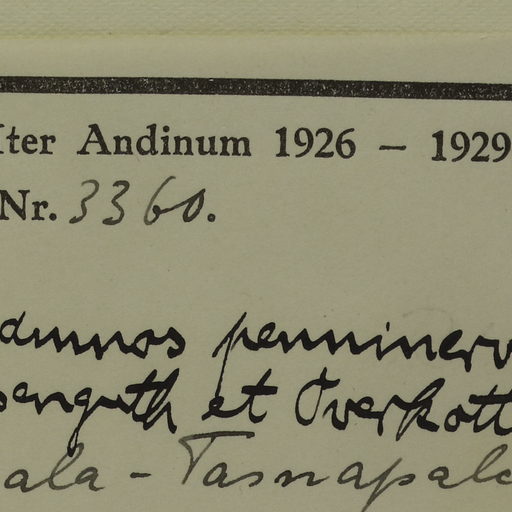 Iter Andinum 1926 – 1929
Nr. 3360.
dumnos penninerv
senguth et Overkott
ala – Tasnapalc